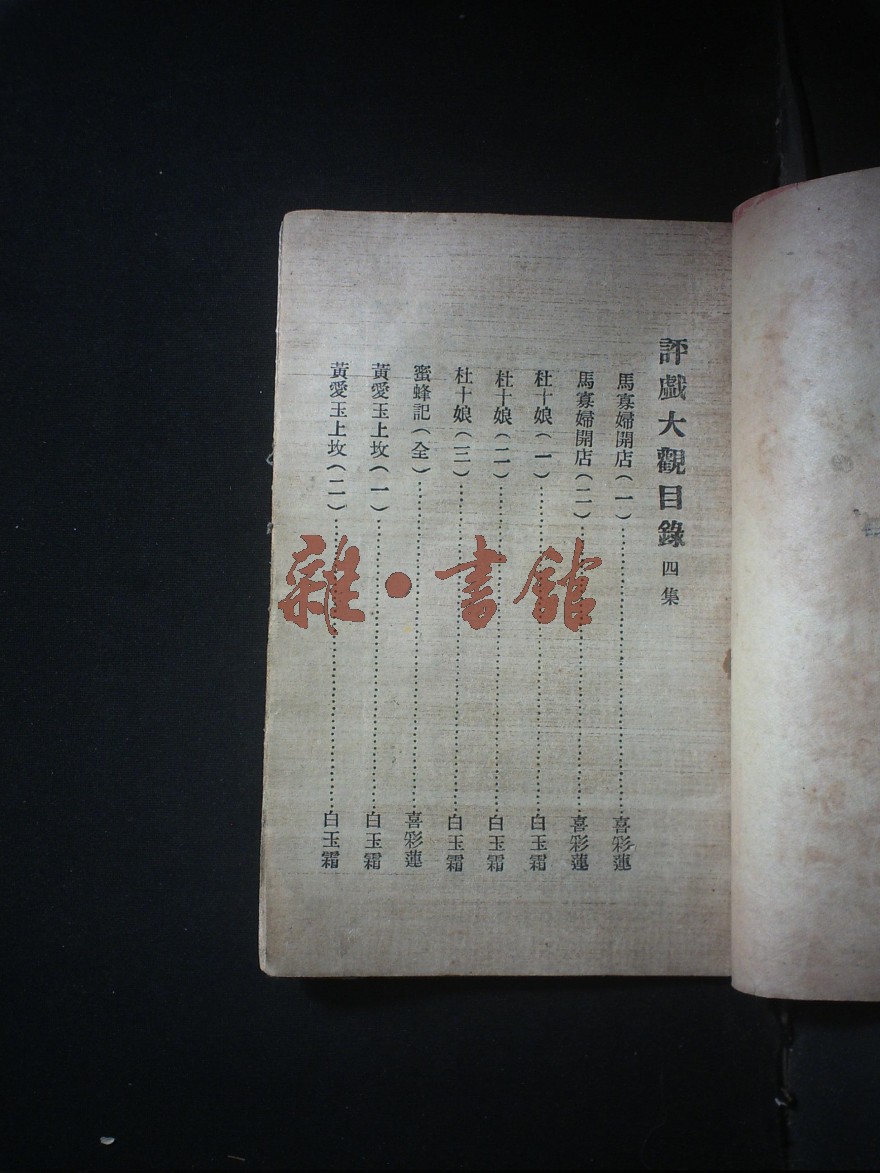 評戲大觀目錄 四集
馬寡婦開店(一)………喜彩蓮
馬寡婦開店(二)………喜彩蓮
杜十娘(一)………白玉霜
杜十娘(二)………白玉霜
杜十娘(三)………白玉霜
蜜蜂記(全)………喜彩蓮
黃愛玉上坟(一)………白玉霜
黃愛玉上坟(二)………白玉霜
雜·書館